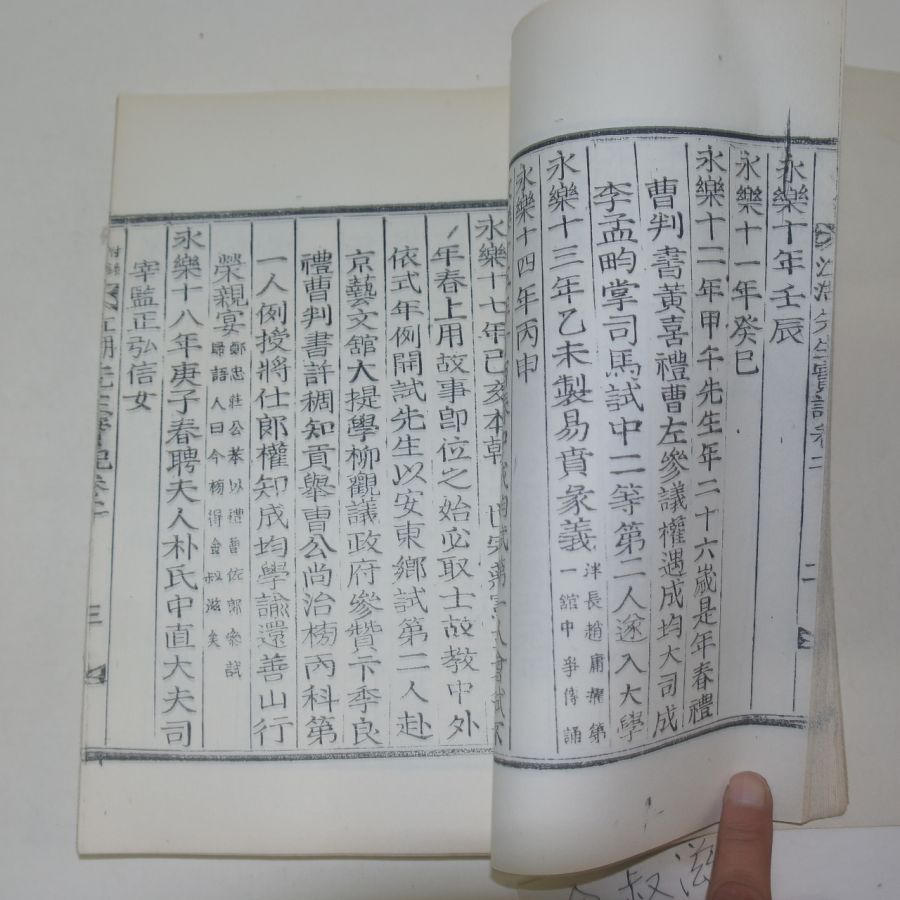 江湖先生實記卷二
二
永樂十年壬辰
永樂十一年癸巳
永樂十二年甲午先生年二十六歲是年春禮
曹判書黃喜禮曹左參議權遇成均大司成
李孟畇掌司馬試中二等第二人遂入大學
永樂十三年乙未製易賁彖義泮長趙庸擢第
一舘中爭傳誦
永樂十四年丙申
永樂十七年己亥本朝
年春上用故事卽位之始必取士故敎中外
依式年例開試先生以安東鄕試第二人赴
京藝文舘大提學柳觀議政府參贊卞季良
禮曹判書許稠知貢擧曹公尚治榜丙科第
一人例授將仕郎權知成均學諭還善山行
榮親宴鄭忠莊公苯以禮曹佐郎參試
歸語人曰今榜得金叔滋矣
永樂十八年庚子春聘夫人朴氏中直大夫司
宰監正弘信女
附錄
江湖先生實記卷二
三
叔滋